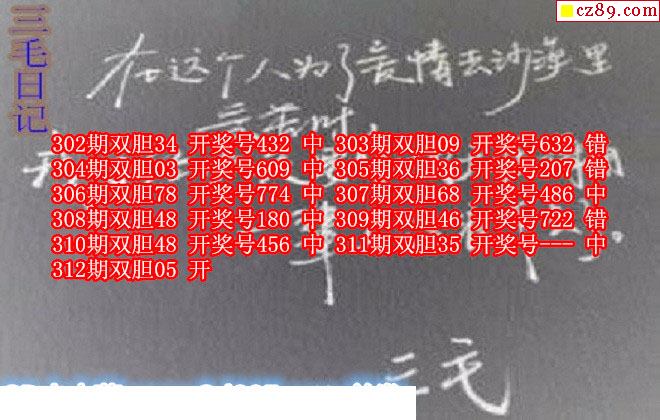 cz89.com
三毛日记
在这个人为了爱情去沙漠里
302期双胆34 开奖号432 中 303期双胆09 开奖号632 错
304期双胆03 开奖号609 中 305期双胆36 开奖号207 错
306期双胆78 开奖号774 中 307期双胆68 开奖号486 中
308期双胆48 开奖号180 中 309期双胆46 开奖号722 错
310期双胆48 开奖号456 中 311期双胆35 开奖号--- 中
312期双胆05 开
三毛